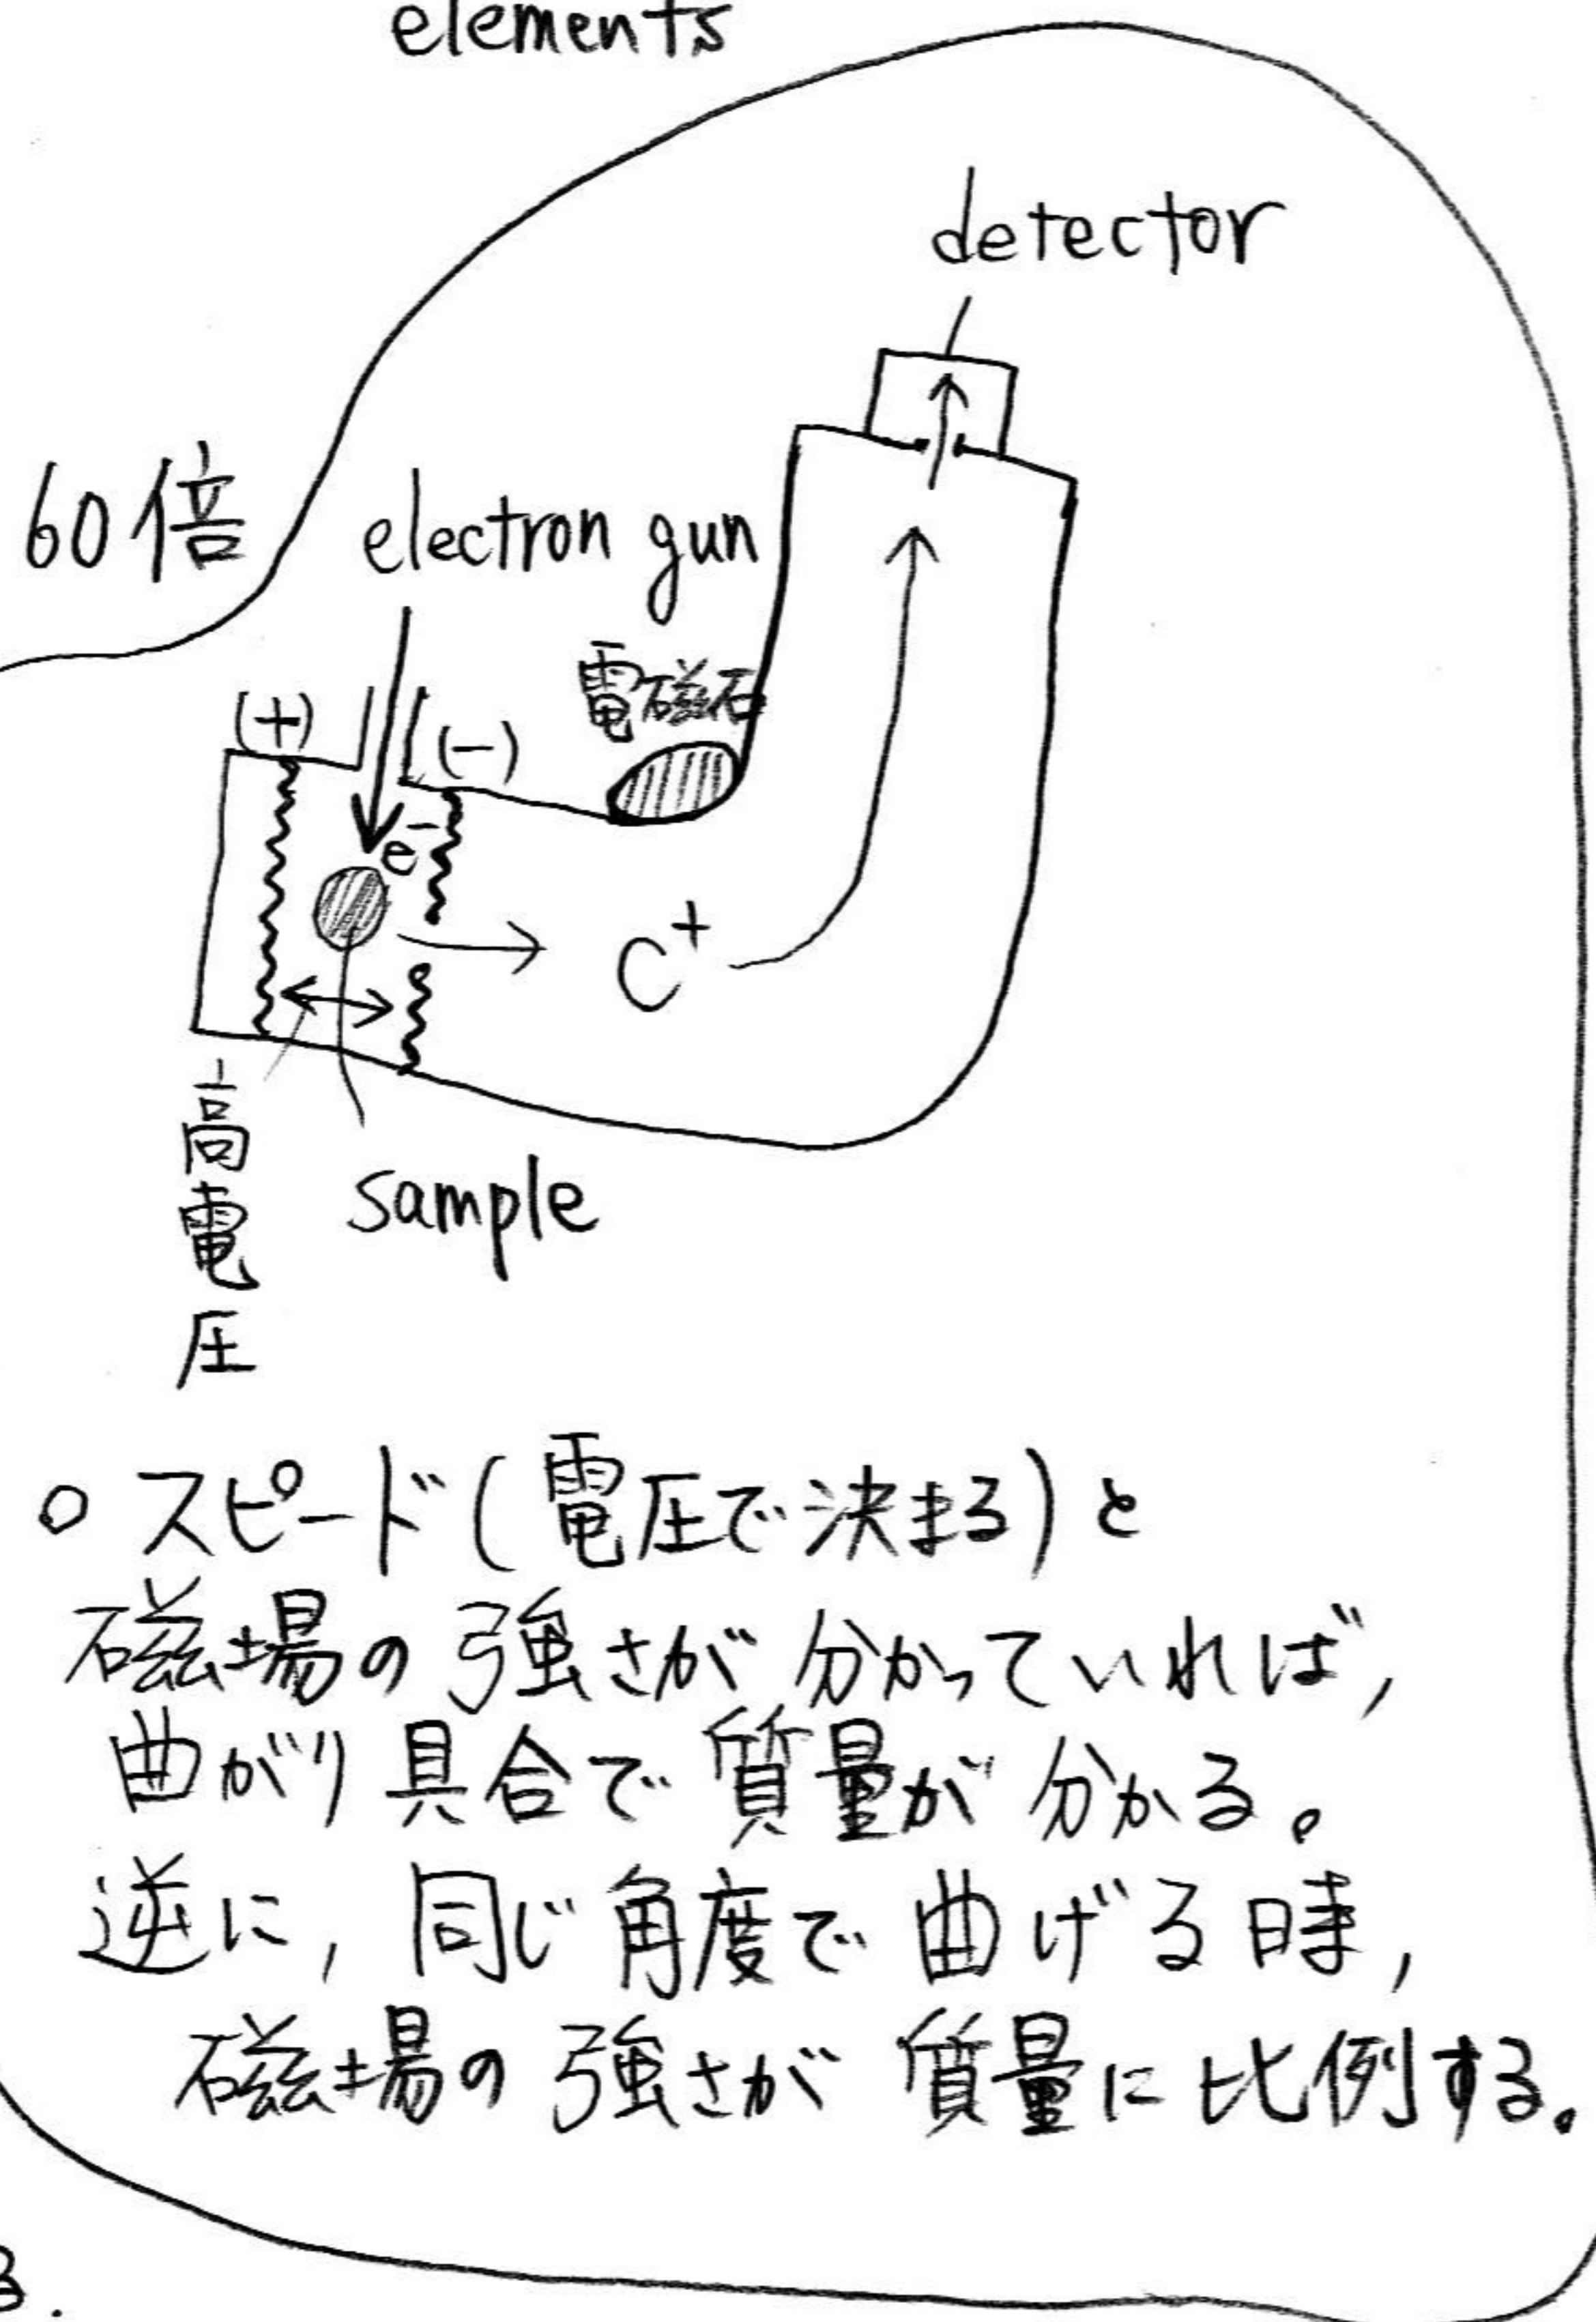 elements
detector
60倍
electron gun
電磁石
(+)
(-)
e⁻
C⁺
高電圧
sample
○ スピード(電圧で決まる)と
磁場の強さが分かっていれば,
曲がり具合で質量が分かる。
逆に,同じ角度で曲げる時,
磁場の強さが質量に比例する。